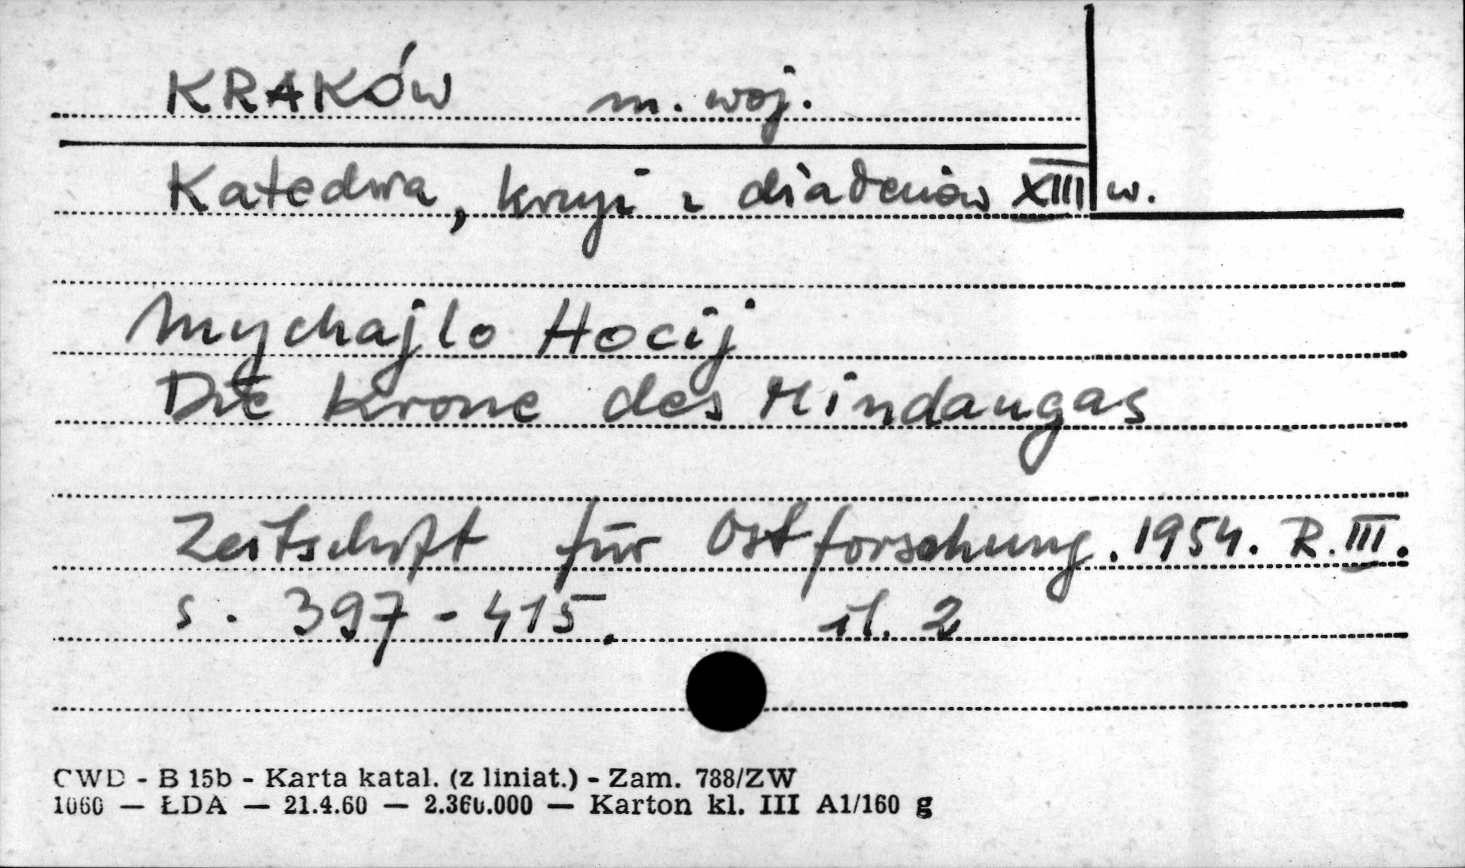 KRAKÓW m. woj.
Katedra, krzyż z diademów XIII w.
Mychajlo Hocij
Die Krone des Mindaugas
Zeitschrift für Ostforschung. 1954. R. III.
s. 397-415. il. 2
CWD - B 15b - Karta katal. (z liniat.) - Zam. 788/ZW
1060 — ŁDA — 21.4.60 — 2.360.000 — Karton kl. III A1/160 g